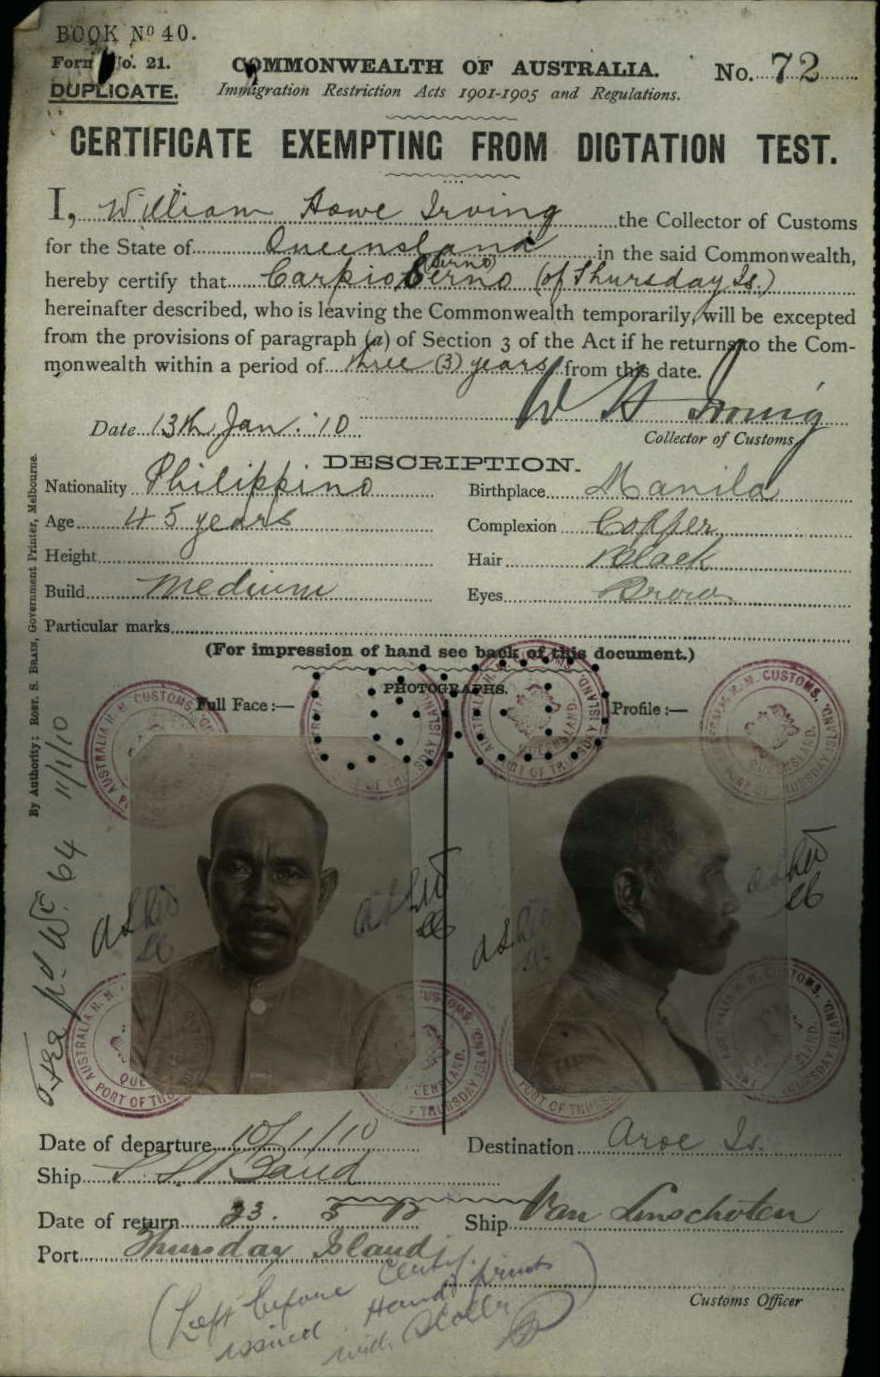 BOOK No 40.
Form No. 21.
DUPLICATE.
COMMONWEALTH OF AUSTRALIA.
No. 72
Immigration Restriction Acts 1901-1905 and Regulations.
CERTIFICATE EXEMPTING FROM DICTATION TEST.
I, William Howe Irving the Collector of Customs
for the State of Queensland in the said Commonwealth,
hereby certify that Carpio (of Thursday Is.)
hereinafter described, who is leaving the Commonwealth temporarily, will be excepted
from the provisions of paragraph (a) of Section 3 of the Act if he returns to the Com-
monwealth within a period of three (3) years from this date.
W H Irving
Date 13th Jan. '10
Collector of Customs
DESCRIPTION.
Nationality Philippino Birthplace Manila
Age 45 years Complexion Copper
Height Hair Black
Build Medium Eyes Brown
Particular marks
(For impression of hand see back of this document.)
PHOTOGRAPHS.
Full Face :— Profile :—
By Authority: ROBT. S. BRAIN, Government Printer, Melbourne.
64 11/1/10
Date of departure 10/1/10 Destination Aroe Is.
Ship
Date of return 23. 5 12 Ship Van Linschoten
Port Thursday Island
Customs Officer
(Left before Certif.
issued. Hand prints